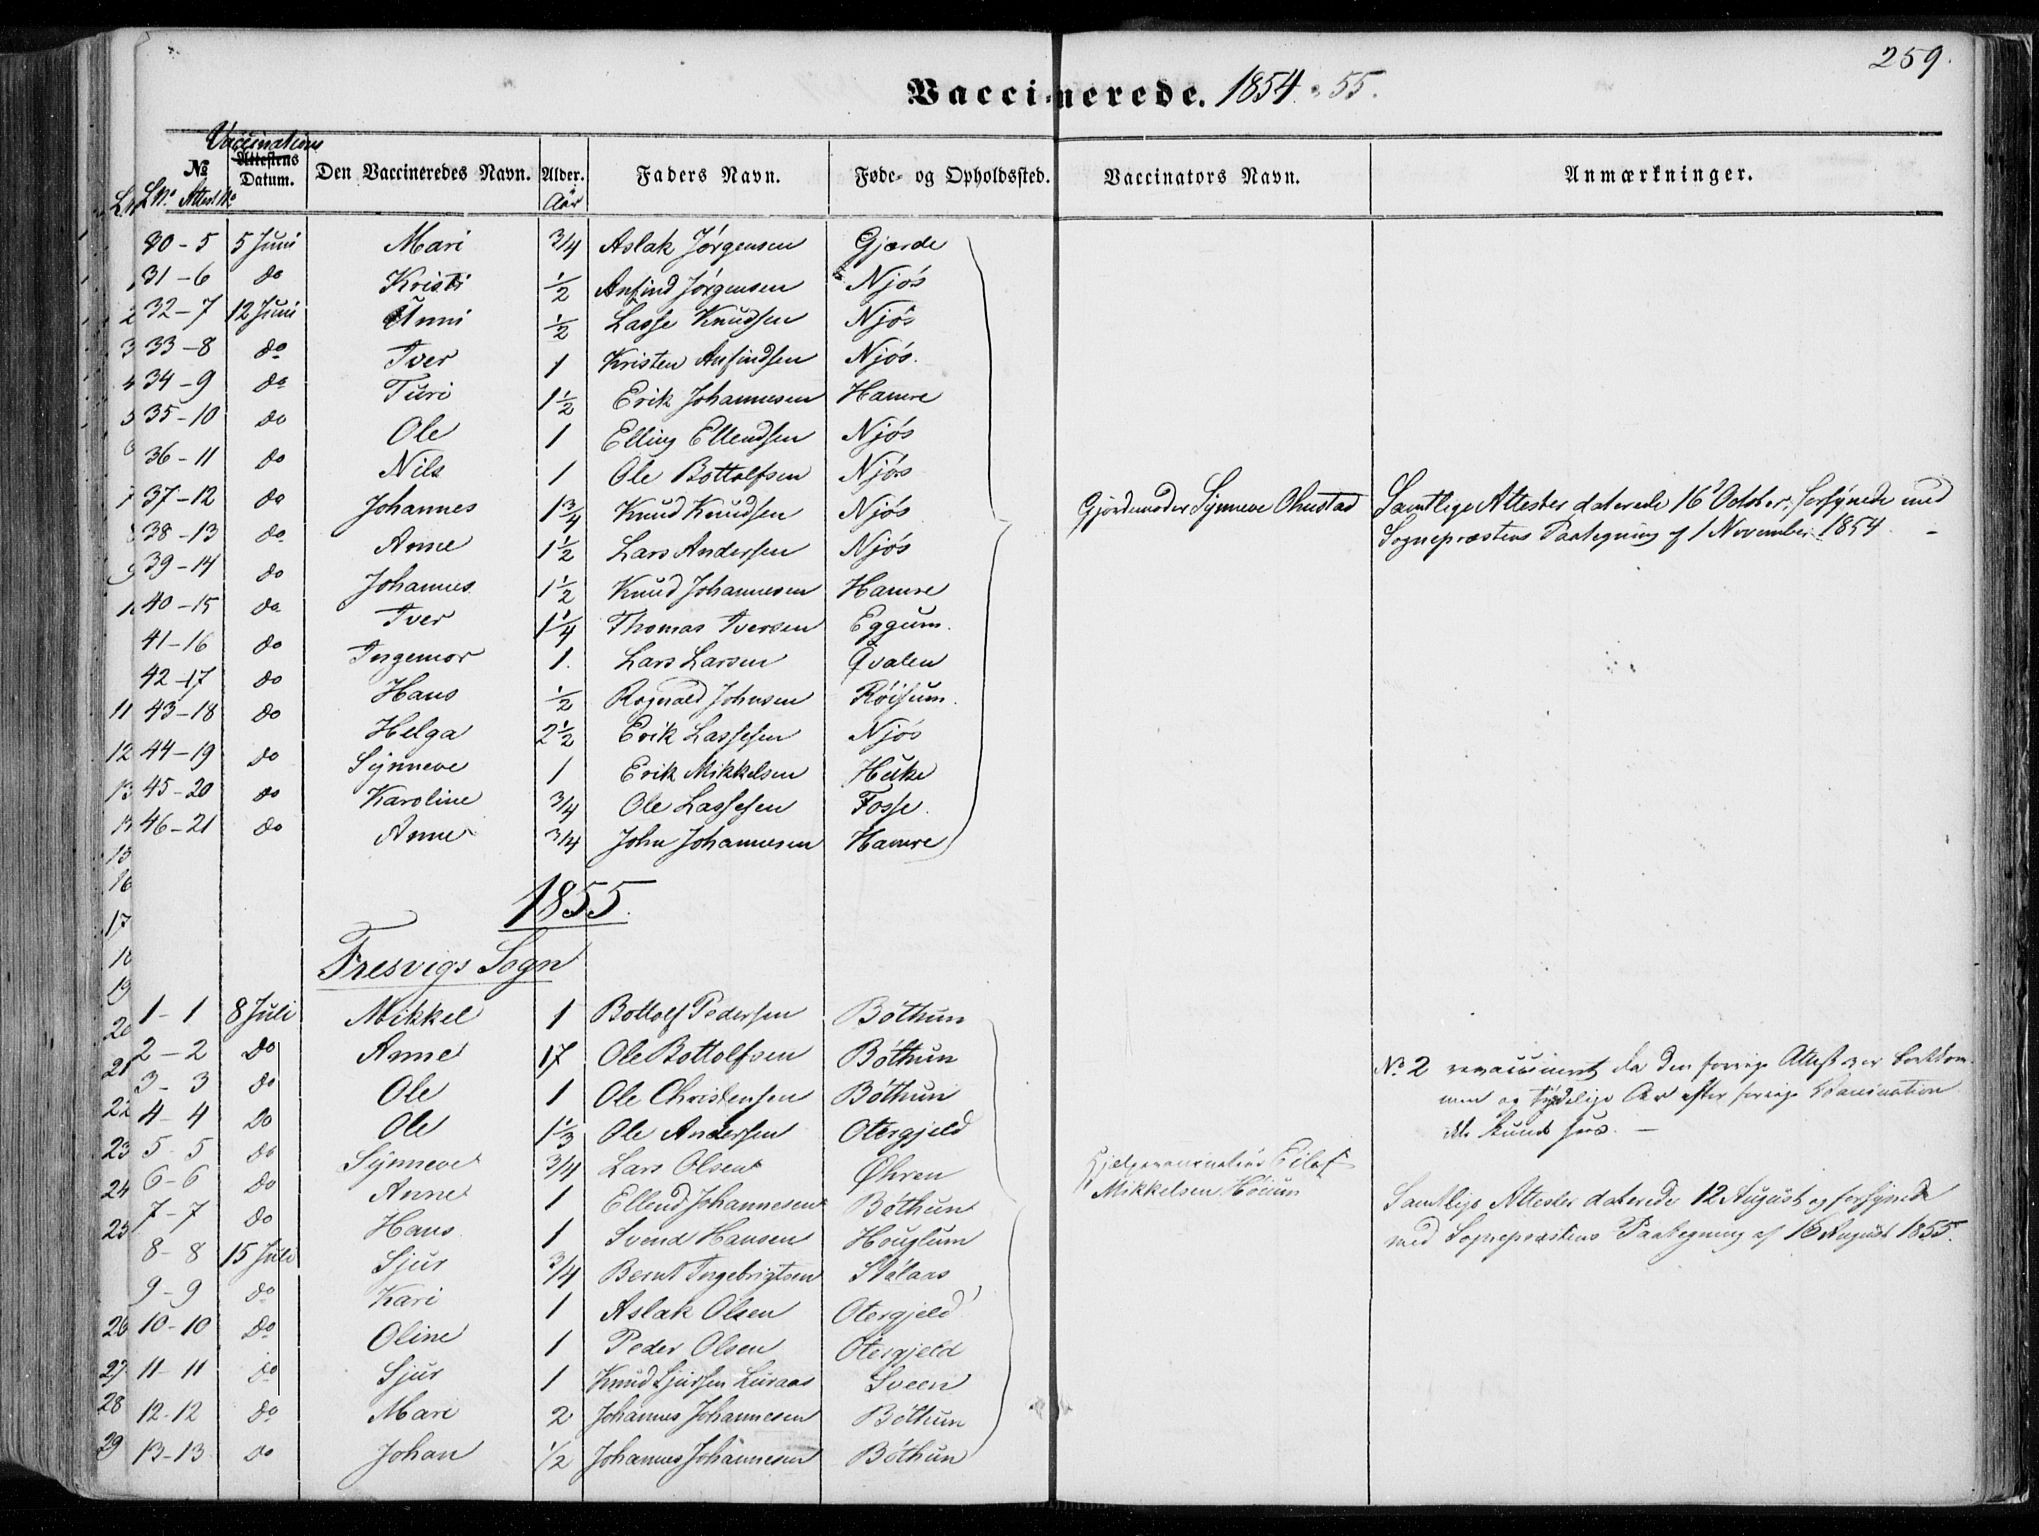 259.
Vaccinerede. 1854 - 55.
Vaccinations
No Attestens Datum. Den Vaccineredes Navn. Alder. Faders Navn. Føde- og Opholdssted. Vaccinators Navn. Anmærkninger.
LNo. Attest.No Aar
30-5 5 Juni Mari 3/4 Aslak Jørgensen Gjærde
31-6 do Kristi 1/2 Anfind Jørgensen Njøs
32-7 12 Juni Unni 1/2 Lasse Knudsen Njøs
33-8 do Iver 1 Kristen Anfindsen Njøs.
34-9 do Turi 1 1/2 Erik Johannesen Hamre
35-10 do Ole 1 Elling Ellendsen Njøs
36-11 do Nils 1 Ole Bottolfsen Njøs
37-12 do Johannes 1 3/4 Knud Knudsen Njøs Gjordemoder Synneve Ohnstad Samtlige Attester daterede 16 October, forsynede med
38-13 do Anne 1 1/2 Lars Andersen Njøs Sognepræstens Paategning af 1 November 1854. -
39-14 do Johannes 1 1/2 Knud Johannesen Hamre
40-15 do Iver 1 1/4 Thomas Iversen Eggum.
41-16 do Ingemor 1. Lars Larsen Qvalen
42-17 do Hans 1/2 Rognald Johnsen Røisum.
43-18 do Helga 2 1/2 Erik Lassesen Njøs
44-19 do Synneve 1 Erik Mikkelsen Huke
45-20 do Karoline 3/4 Ole Lassesen Fosse.
46-21 do Anne 3/4 John Johannesen Hamre
1855.
Fresvigs Sogn
1-1 8 Juli Mikkel 1 Bottolf Pedersen Bøthun
2-2 Do Anne 17 Ole Bottolfsen Bøthun No 2 revaccineret da den forrige Attest er bortkom-
3-3 do Ole 1 Ole Christensen Bøthun men og tydelige Ar efter forrige Vaccination
4-4 do Ole 1 1/3 Ole Andersen Otergjeld ikke kunde sees. -
5-5 do Synneve 3/4 Lars Olsen Øhren Hjelpevaccinatør Eilef
6-6 do Anne 1 Ellend Johannesen Bøthun Mikkelsen Høium Samtlige Attester daterede 12 August og forsynede
7-7 do Hans 1 Svend Hansen Houglum med Sognepræstens Paategning af 16 August 1855.
8-8 15 Juli Sjur 3/4 Bernt Ingebrigtsen Stølaas
9-9 do Kari 1 Aslak Olsen Otergjeld
10-10 Do Oline 1 Peder Olsen Otergjeld
11-11 do Sjur 1 Knud Sjursen Luraas Sveen
12-12 do Mari 2 Johannes Johannesen Bøthun
13-13 do Johan 1/2 Johannes Johannesen Bøthun